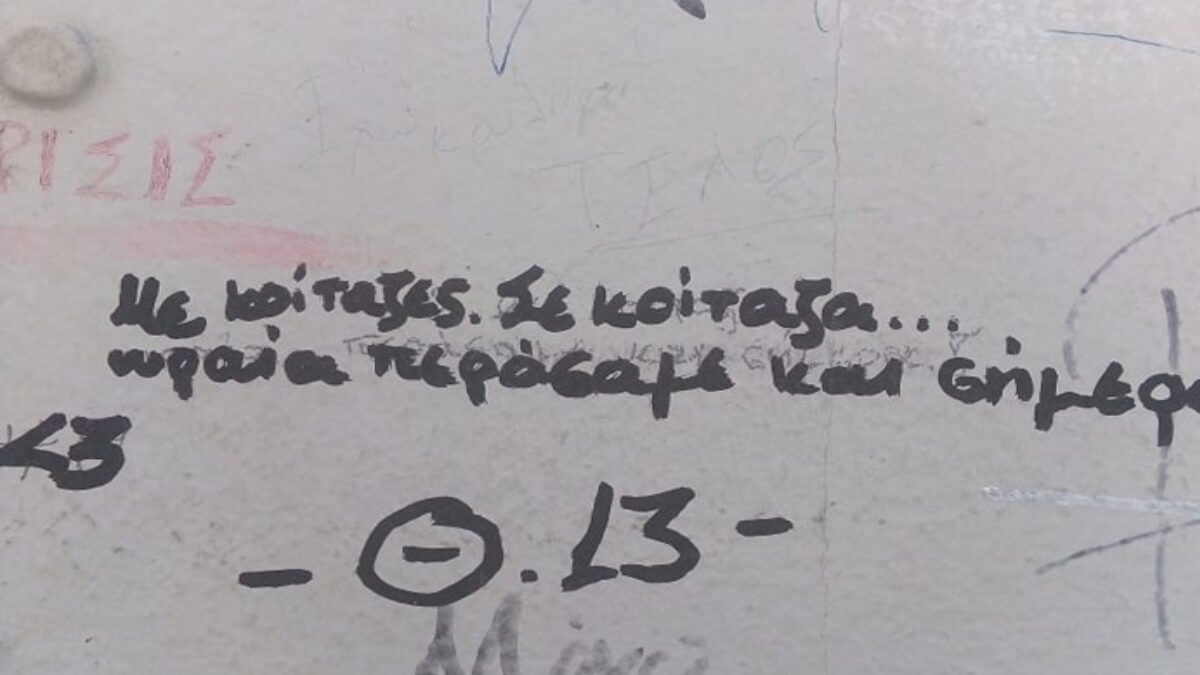 ΡΙΣΙΣ
ΤΕΛΟΣ
Με κοίταξες. Σε κοίταξα...
ωραία περάσαμε και σήμερα
<3
- Θ.13 -